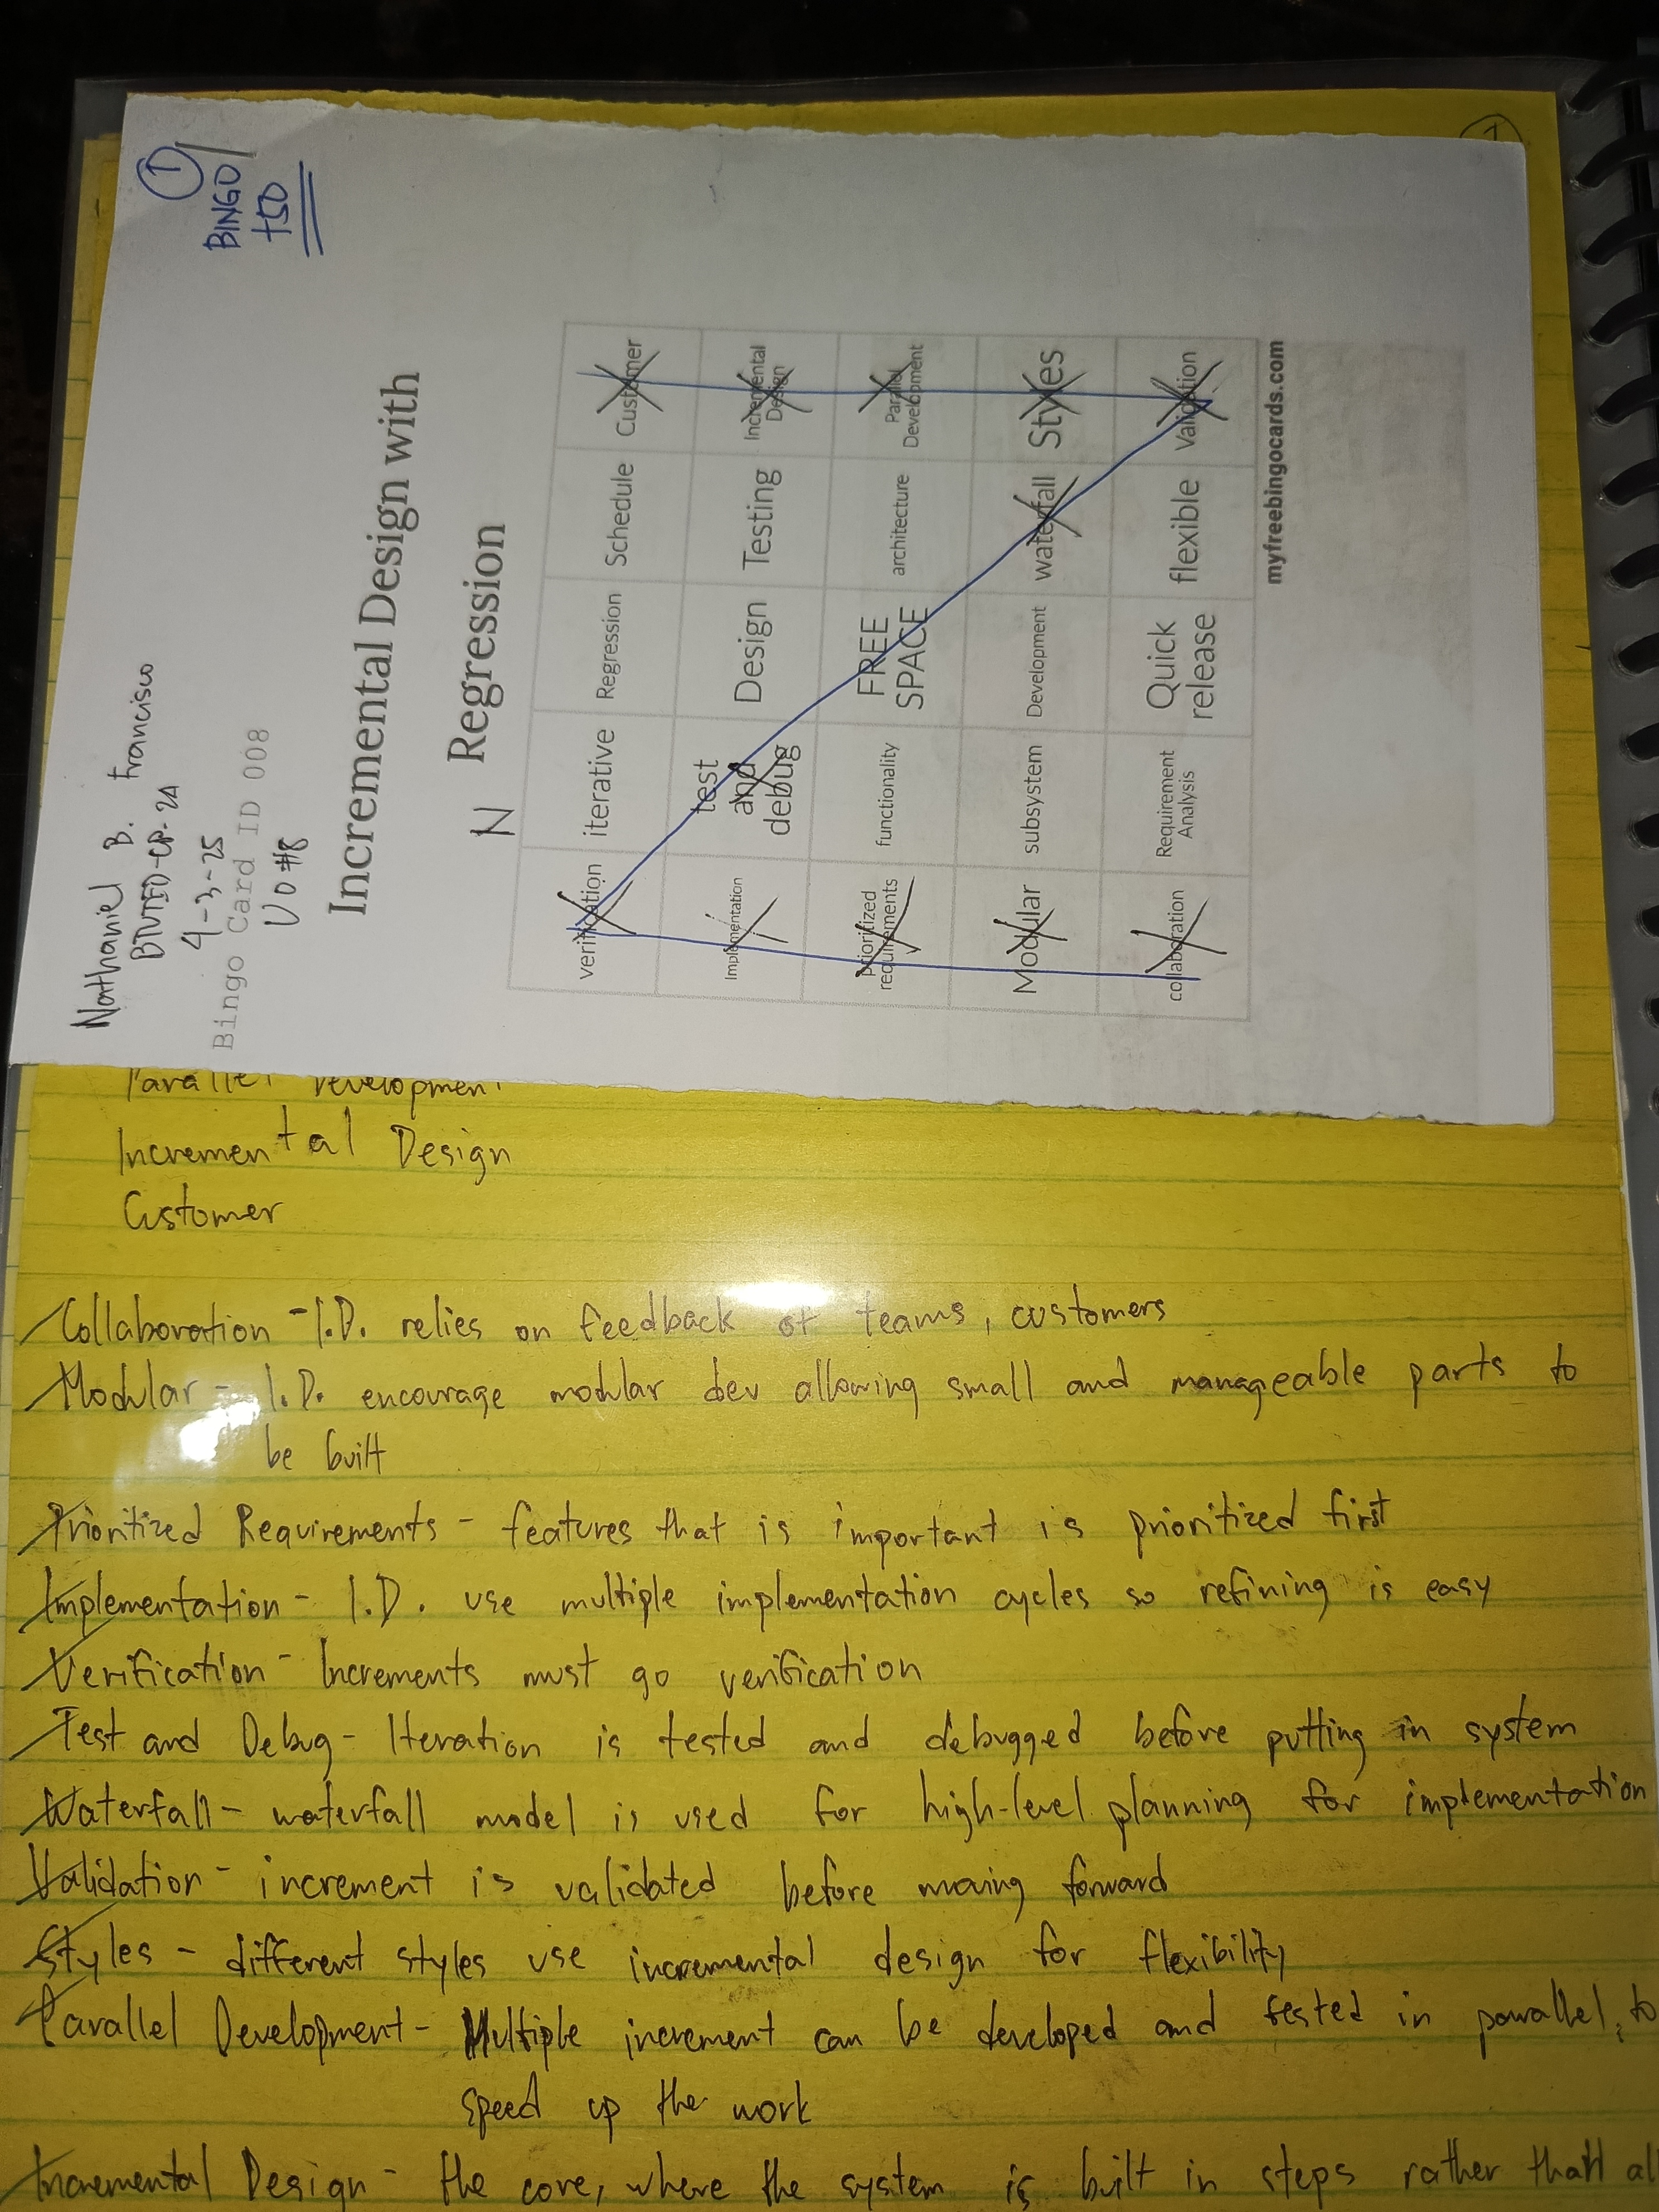 Nathaniel B. Francisco
BTVTED-CP-2A
4-3-25
Bingo Card ID 008
VO #8
1
BINGO
+50
Incremental Design with
Regression
N
verification iterative Regression Schedule Customer
Implementation test and debug Design Testing Incremental Design
Prioritized requirements functionality FREE SPACE architecture Parallel Development
Modular subsystem Development waterfall Styles
collaboration Requirement Analysis Quick release flexible Validation
myfreebingocards.com
Parallel Development
Incremental Design
Customer
Collaboration - I.D. relies on feedback of teams, customers
Modular - I.D. encourage modular dev allowing small and manageable parts to
be built
Prioritized Requirements - features that is important is prioritized first
Implementation - I.D. use multiple implementation cycles so refining is easy
Verification - Increments must go verification
Test and Debug - Iteration is tested and debugged before putting in system
Waterfall - waterfall model is used for high-level planning for implementation
Validation - increment is validated before moving forward
Styles - different styles use incremental design for flexibility
Parallel Development - Multiple increment can be developed and tested in parallel, to
speed up the work
Incremental Design - the core, where the system is built in steps rather than al